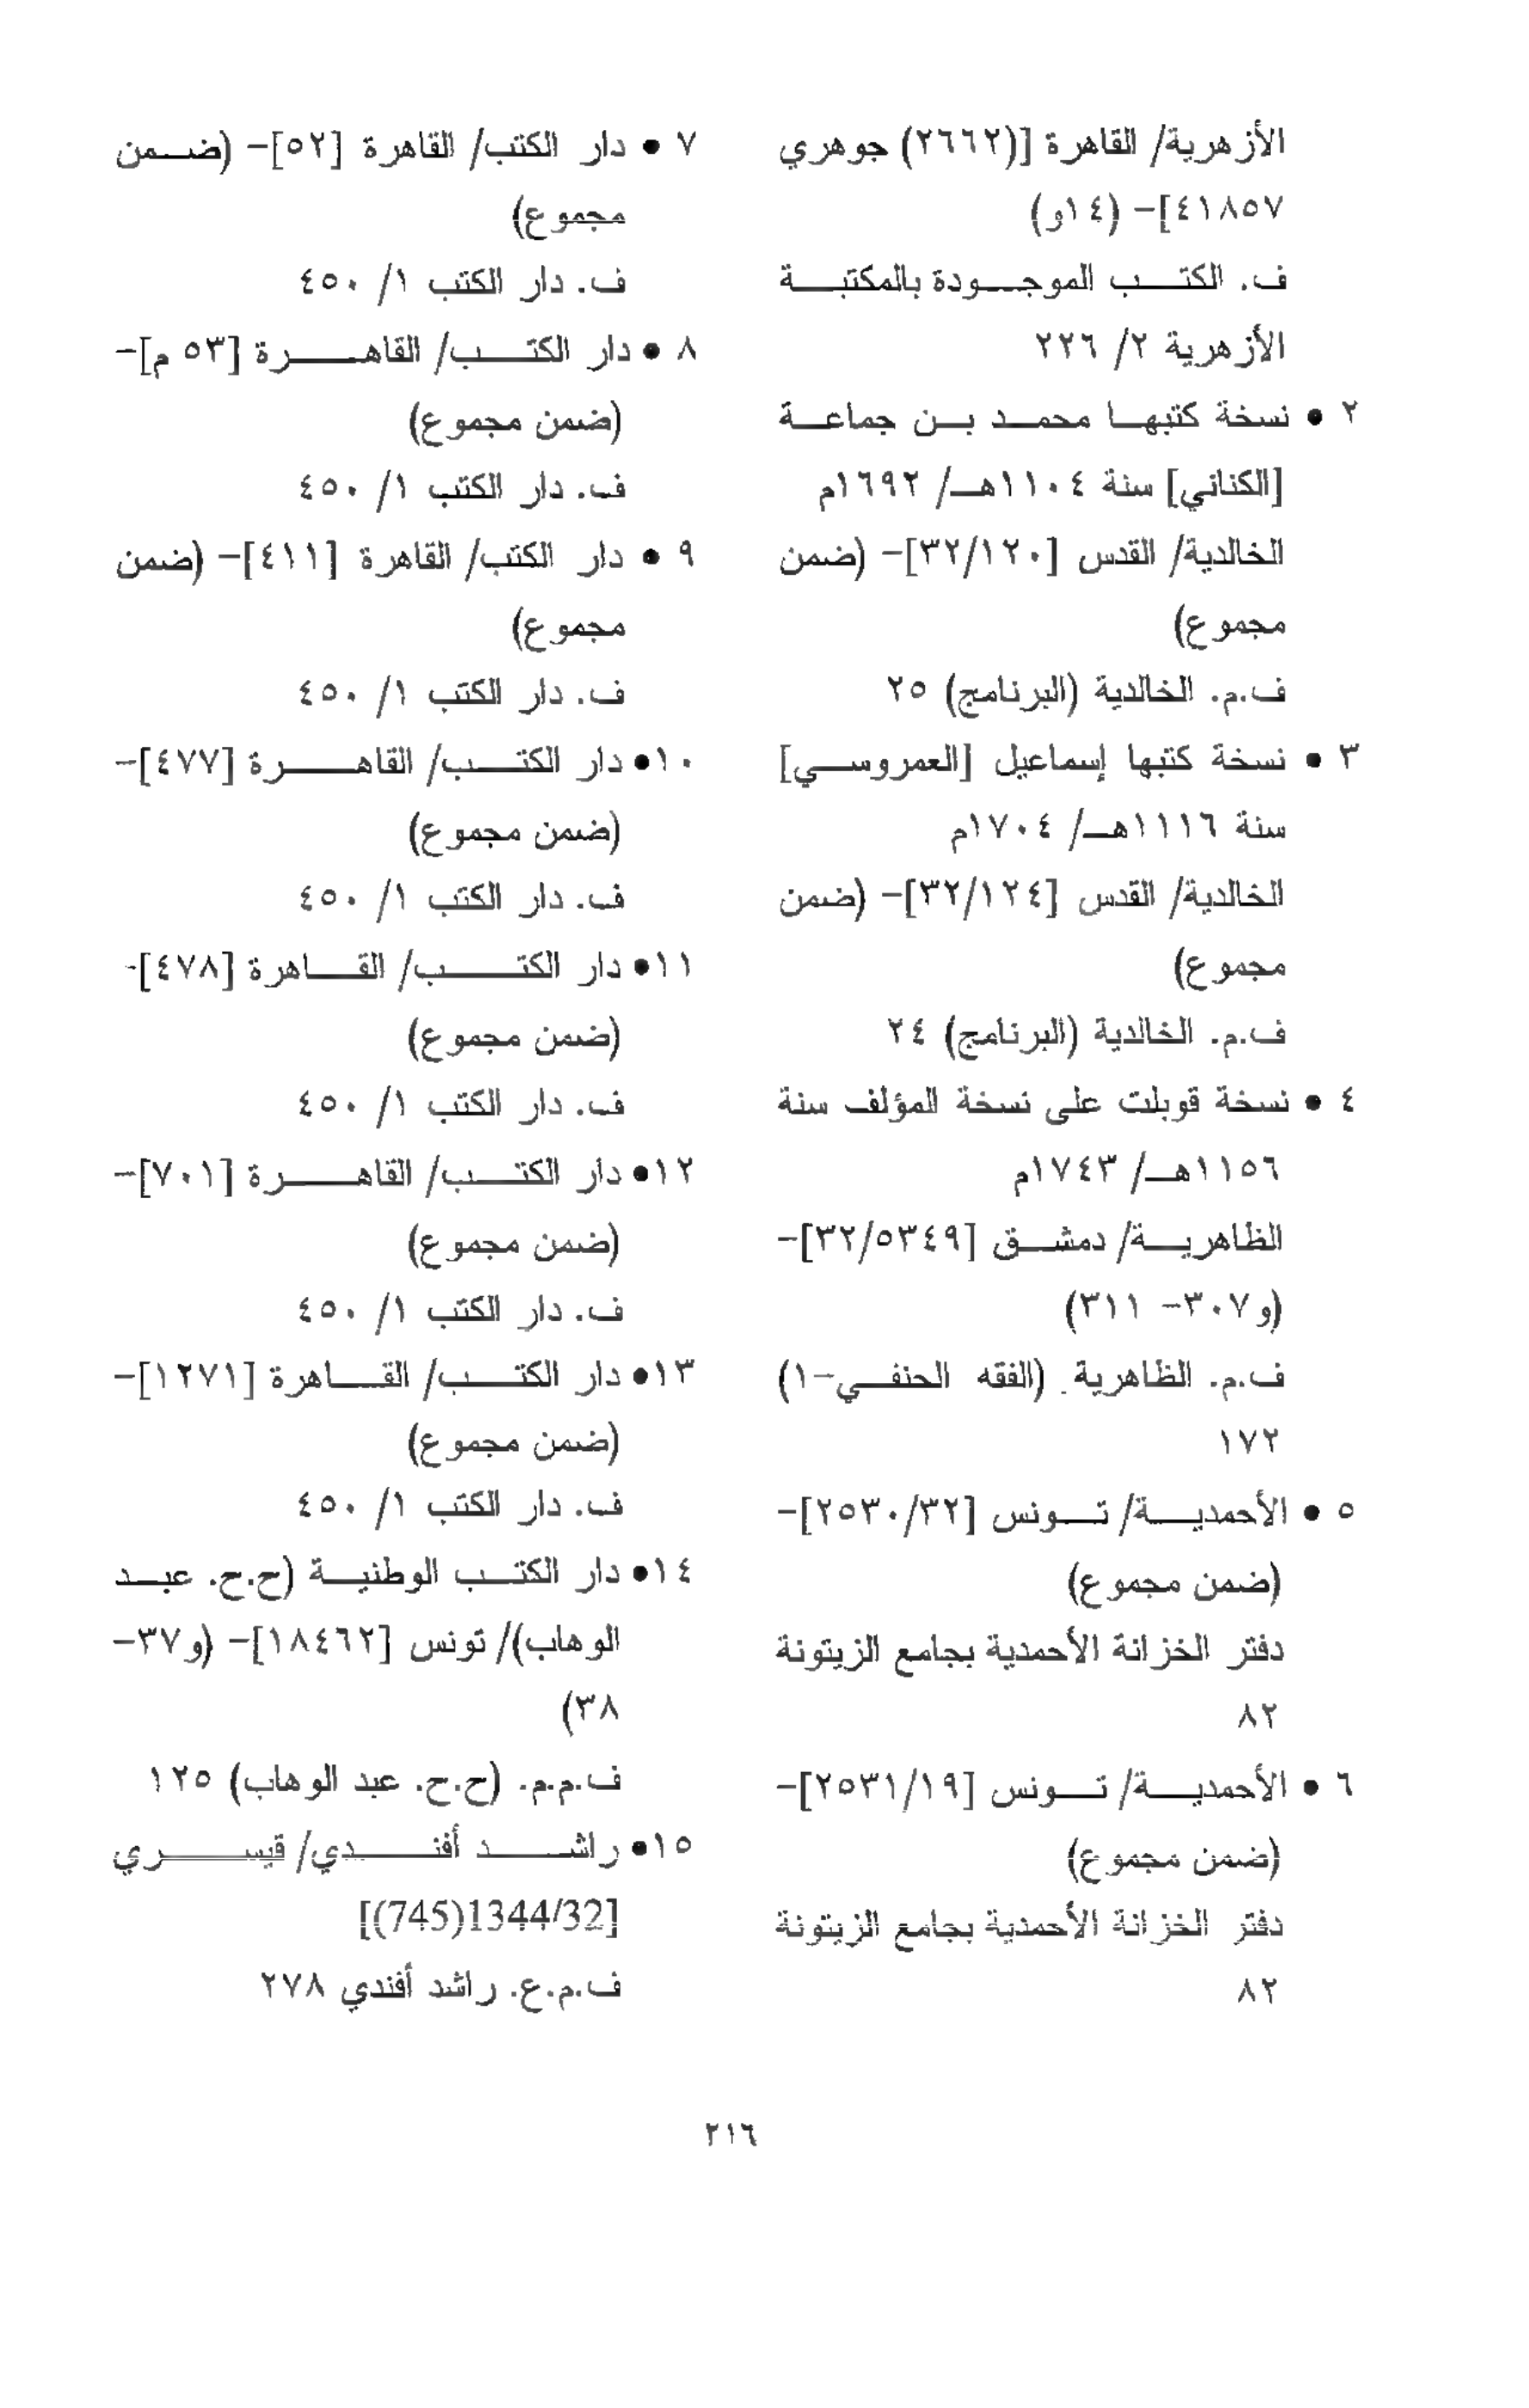 الأزهرية/ القاهرة [(٢٦٦٢) جوهري
٤١٨٥٧]- (١٤و)
ف. الكتب الموجودة بالمكتبة
الأزهرية ٢/ ٢٢٦
٢ • نسخة كتبها محمد بن جماعة
[الكناني] سنة ١١٠٤هـ/ ١٦٩٢م
الخالدية/ القدس [٣٢/١٢٠]- (ضمن
مجموع)
ف.م. الخالدية (البرنامج) ٢٥
٣ • نسخة كتبها إسماعيل [العمروسي]
سنة ١١١٦هـ/ ١٧٠٤م
الخالدية/ القدس [٣٢/١٢٤]- (ضمن
مجموع)
ف.م. الخالدية (البرنامج) ٢٤
٤ • نسخة قوبلت على نسخة المؤلف سنة
١١٥٦هـ/ ١٧٤٣م
الظاهرية/ دمشق [٣٢/٥٣٤٩]-
(و٣٠٧- ٣١١)
ف.م. الظاهرية (الفقه الحنفي-١)
١٧٢
٥ • الأحمدية/ تونس [٢٥٣٠/٣٢]-
(ضمن مجموع)
دفتر الخزانة الأحمدية بجامع الزيتونة
٨٢
٦ • الأحمدية/ تونس [٢٥٣١/١٩]-
(ضمن مجموع)
دفتر الخزانة الأحمدية بجامع الزيتونة
٨٢
٧ • دار الكتب/ القاهرة [٥٢]- (ضمن
مجموع)
ف. دار الكتب ١/ ٤٥٠
٨ • دار الكتب/ القاهرة [٥٣ م]-
(ضمن مجموع)
ف. دار الكتب ١/ ٤٥٠
٩ • دار الكتب/ القاهرة [٤١١]- (ضمن
مجموع)
ف. دار الكتب ١/ ٤٥٠
١٠• دار الكتب/ القاهرة [٤٧٧]-
(ضمن مجموع)
ف. دار الكتب ١/ ٤٥٠
١١• دار الكتب/ القاهرة [٤٧٨]-
(ضمن مجموع)
ف. دار الكتب ١/ ٤٥٠
١٢• دار الكتب/ القاهرة [٧٠١]-
(ضمن مجموع)
ف. دار الكتب ١/ ٤٥٠
١٣• دار الكتب/ القاهرة [١٢٧١]-
(ضمن مجموع)
ف. دار الكتب ١/ ٤٥٠
١٤• دار الكتب الوطنية (ح.ح. عبد
الوهاب)/ تونس [١٨٤٦٢]- (و٣٧-
٣٨)
ف.م.م. (ح.ح. عبد الوهاب) ١٢٥
١٥• راشد أفندي/ قيسري
[(745)1344/32]
ف.م.ع. راشد أفندي ٢٧٨
٢١٦